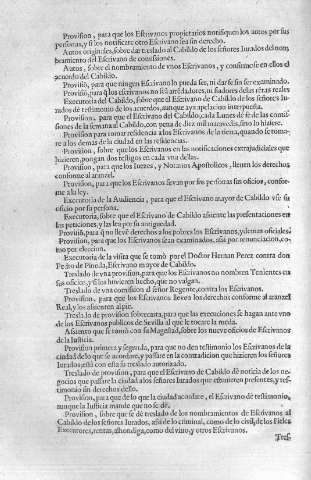 Provision, para que los Escrivanos propietarios notifiquen los autos por sus
personas, y si los notificare otro Escrivano sea sin derecho.
Autos originales, sobre dar traslado al Cabildo de los señores Jurados del nom
bramiento del Escrivano de comissiones.
Autos, sobre el nombramiento de unos Escrivanos, y confirmose en ellos el
acuerdo del Cabildo.
Provisiõ, para que ningun Escrivano lo pueda ser, ni dar fe sin ser examinado.
Provisiõ, para q los escrivanos no seã arrẽdadores, ni fiadores de las rẽtas reales
Executoria del Cabildo, sobre que el Escrivano de Cabildo de los señores Ju-
rados dè testimonio de los acuerdos, aunque aya apelacion interpuesta.
Provision, para que el Escrivano del Cabildo, cada Lunes dè fe de las comis-
siones de la semana al Cabildo, con pena de diez mil maravedis, sino lo hiziere.
Provision para tomar residencia a los Escrivanos de la tierra, quando se toma-
re a los demàs de la ciudad en las residencias.
Provision, sobre que los Escrivanos en las notificaciones extrajudiciales que
hizieren, pongan dos testigos en cada una dellas.
Provision, para que los Juezes, y Notarios Apostolicos, lleven los derechos
conforme al aranzel.
Provision, para que los Escrivanos sirvan por sus personas sus oficios, confor-
me a la ley.
Executoria de la Audiencia, para que el Escrivano mayor de Cabildo use su
oficio por su persona.
Executoria, sobre que el Escrivano de Cabildo assiente las presentaciones en
las peticiones, y las lea por su antiguedad.
Provisiõ, para q no lleve derechos a los pobres los Escrivanos, y demas oficiales.
Provision, para que los Escrivanos sean examinados, assi por renunciacion, co-
mo por eleccion.
Executoria de la visita que se tomò por el Doctor Hernan Perez contra don
Pedro de Pineda, Escrivano mayor de Cabildo.
Traslado de una provision, para que los Escrivanos no nombren Tenientes en
sus oficios, y si los hizieren hecho, que no valgan.
Traslado de una comission el señor Regente, contra los Escrivanos.
Provision, para que los Escrivanos lleven los derechos conforme al aranzel
Real, y los assienten alpie.
Traslado de provision sobrecarta, para que las execuciones se hagan ante uno
de los Escrivanos publicos de Sevilla al que le tocare la meda.
Assiento que se tomò con su Magestad, sobre los nueve oficios de Escrivanos
de la Justicia.
Provision primera y segunda, para que no den testimonio los Escrivanos de la
ciudad de lo que se acordare, y passare en la contradicion que hizieren los señores
Jurados, està con ella su traslado autorizado.
Traslado de provision, para que el Escrivano de Cabildo dè noticia de los ne-
gocios que passare la ciudad a los señores Jurados que estuvieren presentes, y tes-
timonio sin derechos dello.
Provision, para que de lo que la ciudad acordare, el Escrivano dè testimonio,
aunque la Justicia mande que no se dè.
Provision, sobre que se dè traslado de los nombramientos de Escrivanos al
Cabildo de los señores Jurados, assi de lo criminal, como de lo civil, de los Fieles
Executores, rentas, alhondiga, como del vino, y otros Escrivanos.
Tres